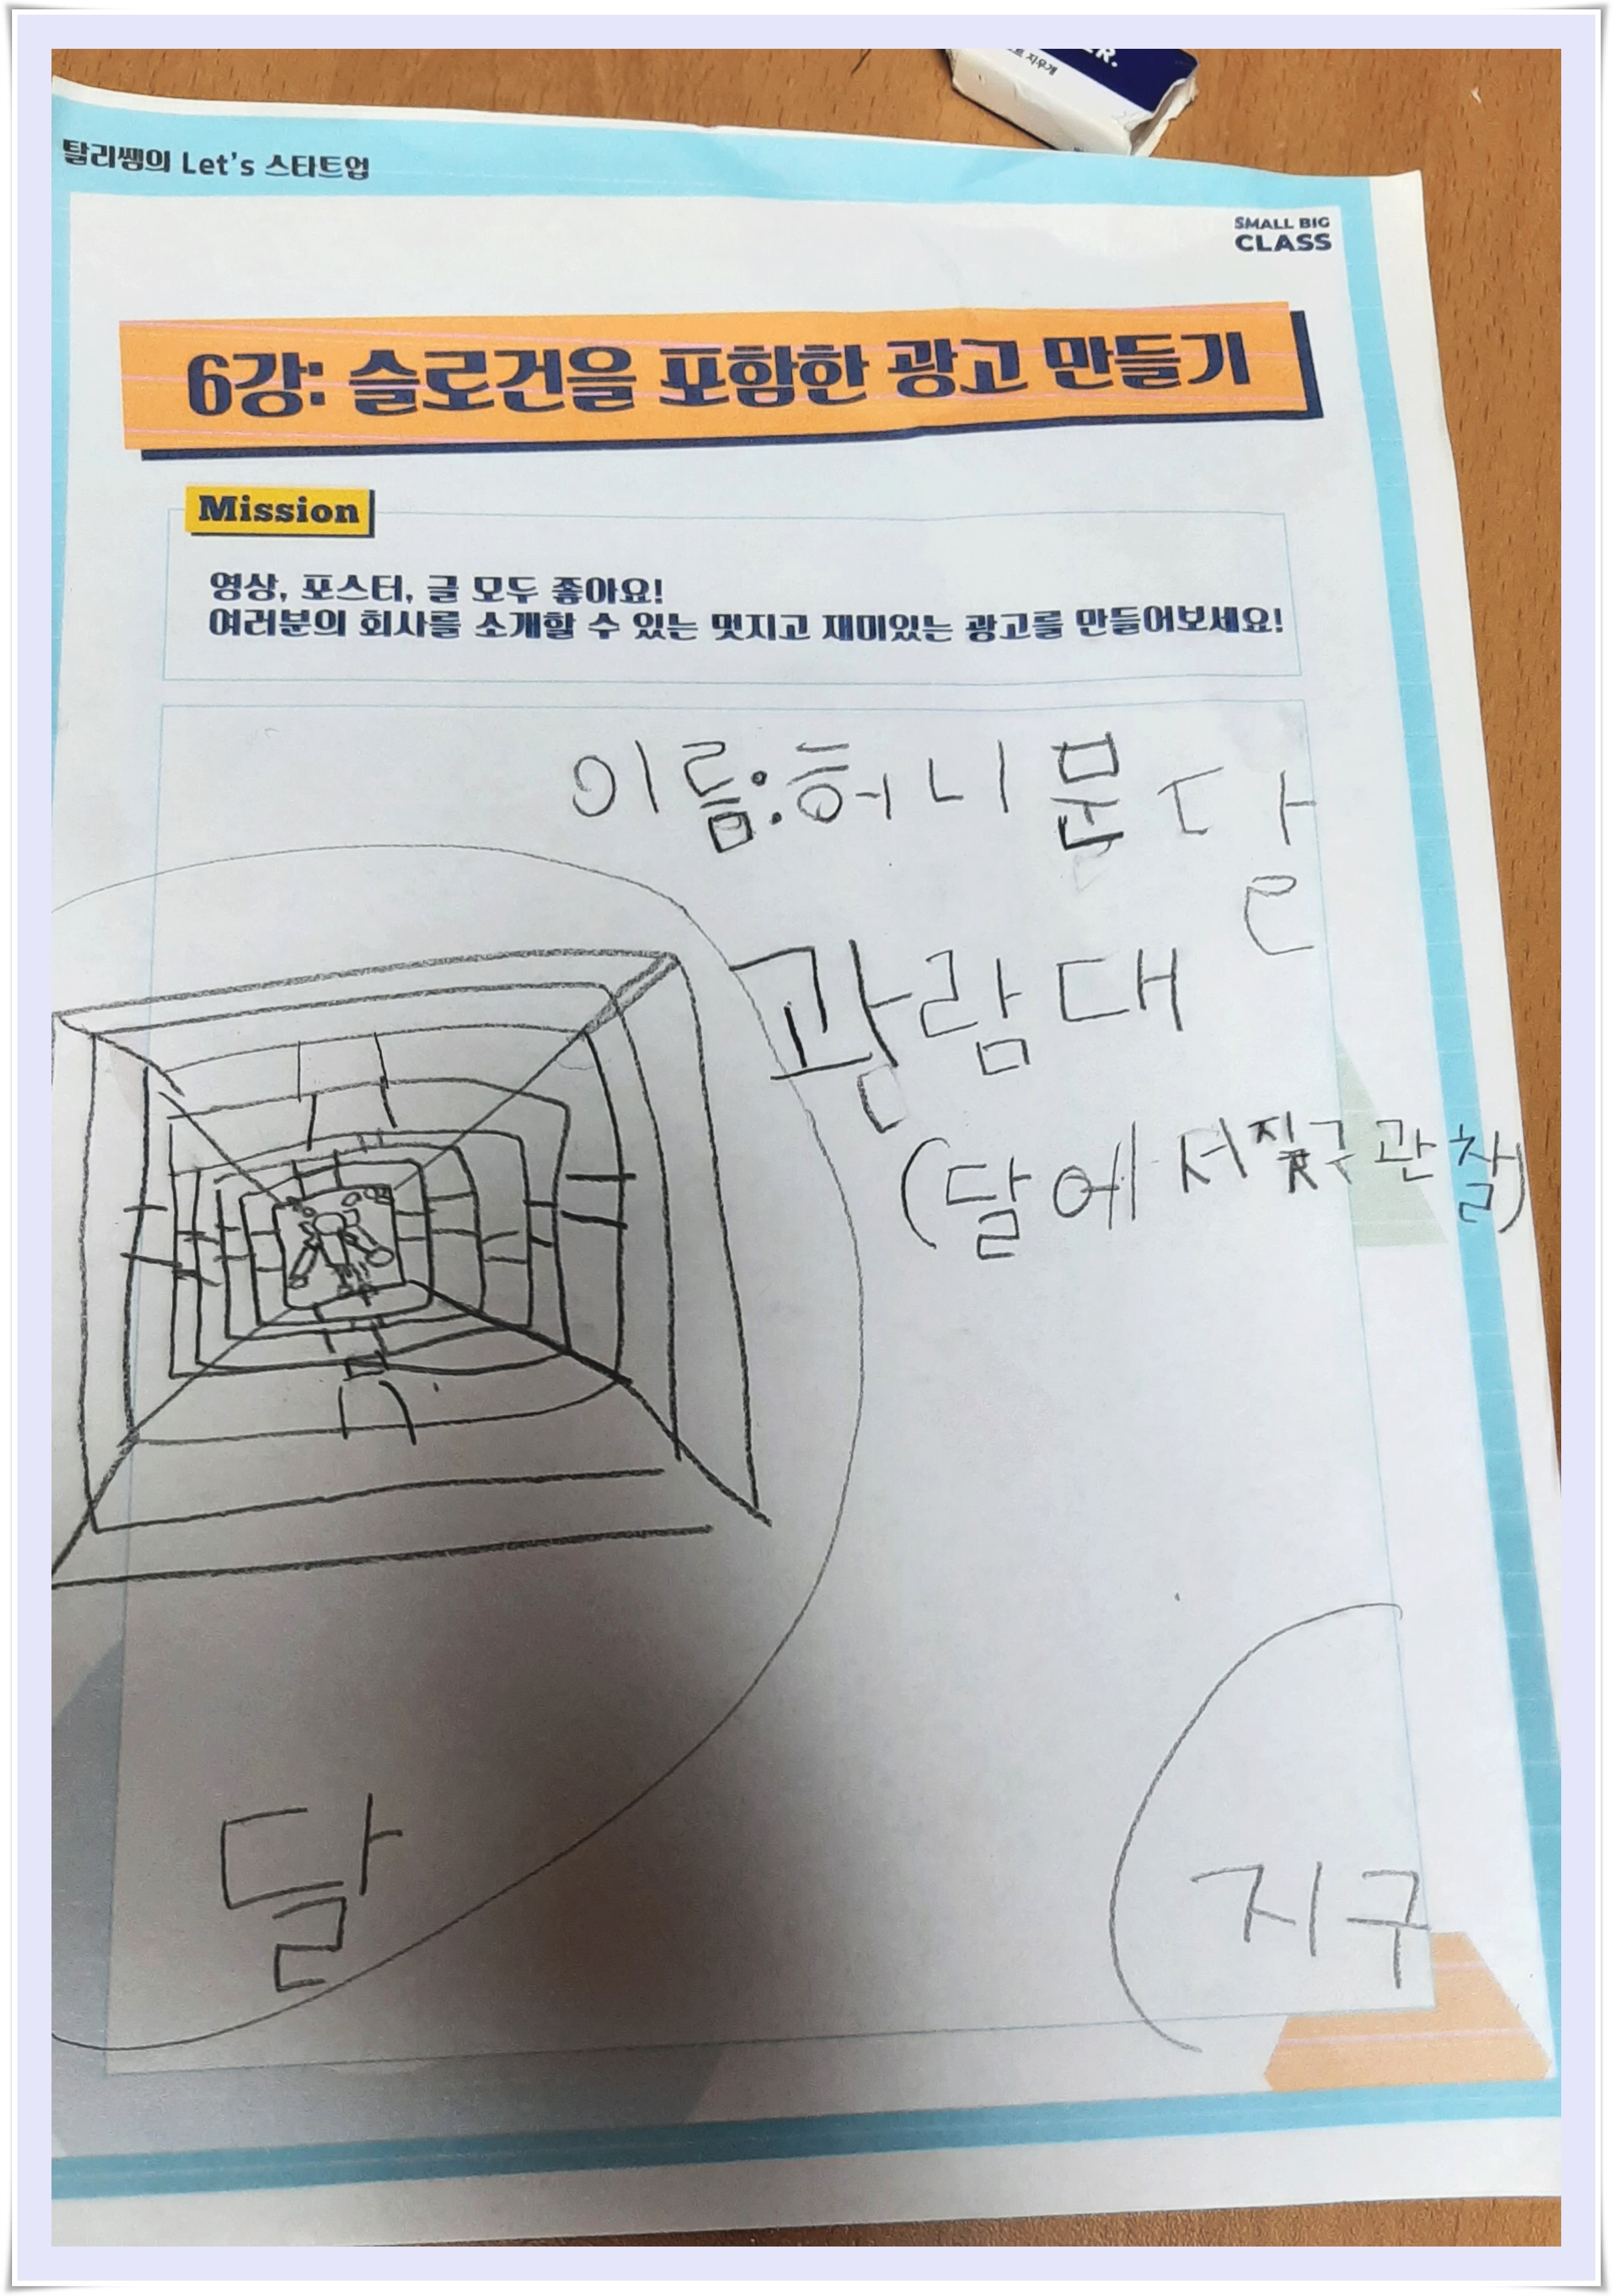 R.
트 지우개
탈리쌤의 Let's 스타트업
SMALL BIG
CLASS
6강: 슬로건을 포함한 광고 만들기
Mission
영상, 포스터, 글 모두 좋아요!
여러분의 회사를 소개할 수 있는 멋지고 재미있는 광고를 만들어보세요!
이름:허니문 달
관람대
(달에서 지구 관찰)
달
지구